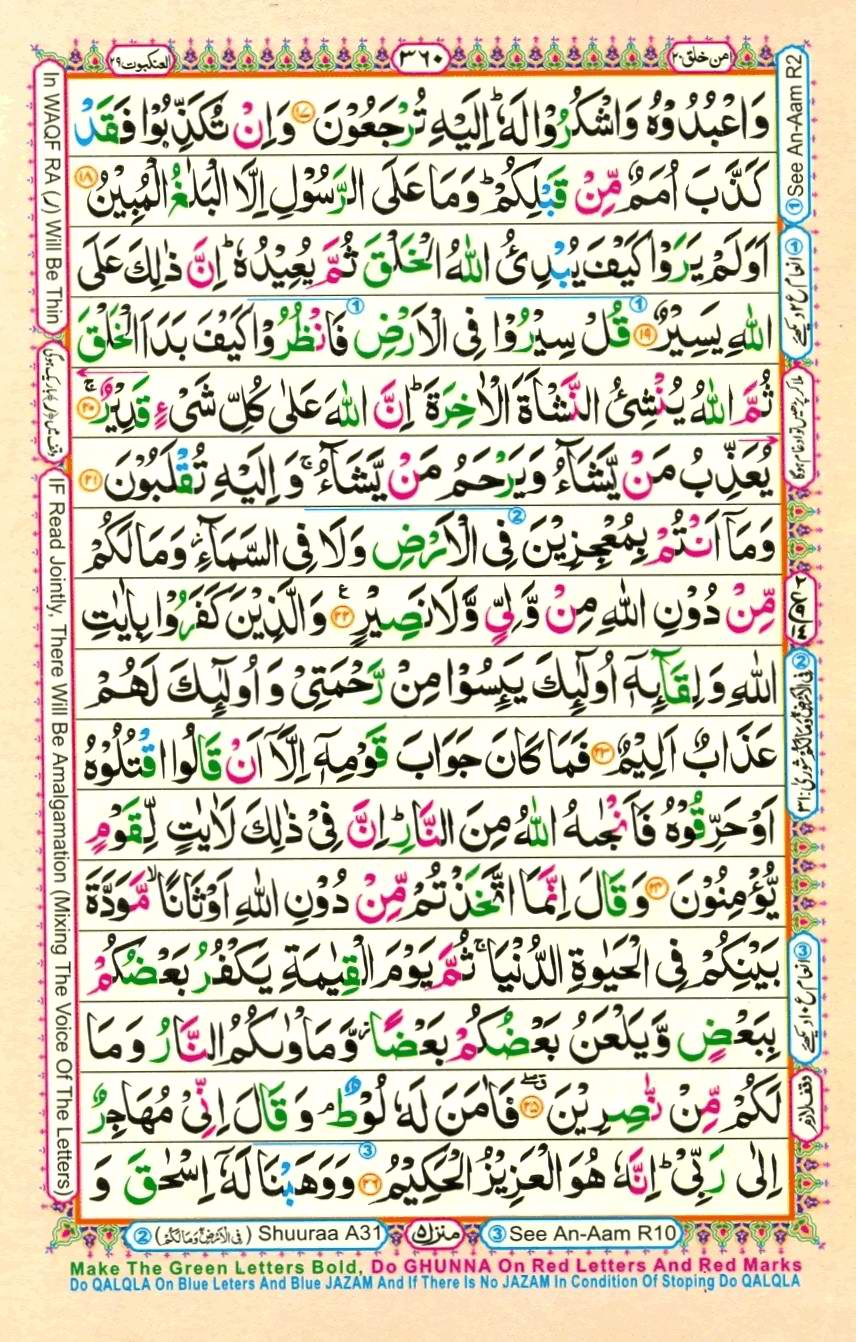 العنكبوت ٢٩
٣٦٠
امن خلق ٢٠
وَاعْبُدُوْهُ وَاشْكُرُوْا لَهٗ ؕ اِلَيْهِ تُرْجَعُوْنَ ﴿۱۷﴾ وَاِنْ تُكَذِّبُوْا فَقَدْ
كَذَّبَ اُمَمٌ مِّنْ قَبْلِكُمْ ؕ وَمَا عَلَى الرَّسُوْلِ اِلَّا الْبَلٰغُ الْمُبِيْنُ ﴿۱۸﴾
اَوَلَمْ يَرَوْا كَيْفَ يُبْدِئُ اللّٰهُ الْخَلْقَ ثُمَّ يُعِيْدُهٗ ؕ اِنَّ ذٰلِكَ عَلَى
اللّٰهِ يَسِيْرٌ ﴿۱۹﴾ قُلْ سِيْرُوْا فِى الْاَرْضِ فَانْظُرُوْا كَيْفَ بَدَاَ الْخَلْقَ
ثُمَّ اللّٰهُ يُنْشِئُ النَّشْاَةَ الْاٰخِرَةَ ؕ اِنَّ اللّٰهَ عَلٰى كُلِّ شَىْءٍ قَدِيْرٌ ۚ ﴿۲۰﴾
يُعَذِّبُ مَنْ يَّشَآءُ وَيَرْحَمُ مَنْ يَّشَآءُ ۚ وَاِلَيْهِ تُقْلَبُوْنَ ﴿۲۱﴾
وَمَاۤ اَنْتُمْ بِمُعْجِزِيْنَ فِى الْاَرْضِ وَلَا فِى السَّمَآءِ ؗ وَمَا لَكُمْ
مِّنْ دُوْنِ اللّٰهِ مِنْ وَّلِىٍّ وَّلَا نَصِيْرٍ ﴿۲۲﴾ ع وَالَّذِيْنَ كَفَرُوْا بِاٰيٰتِ
اللّٰهِ وَلِقَآئِهٖۤ اُولٰٓئِكَ يَئِسُوْا مِنْ رَّحْمَتِىْ وَاُولٰٓئِكَ لَهُمْ
عَذَابٌ اَلِيْمٌ ﴿۲۳﴾ فَمَا كَانَ جَوَابَ قَوْمِهٖۤ اِلَّاۤ اَنْ قَالُوا اقْتُلُوْهُ
اَوْ حَرِّقُوْهُ فَاَنْجٰىهُ اللّٰهُ مِنَ النَّارِ ؕ اِنَّ فِىْ ذٰلِكَ لَاٰيٰتٍ لِّقَوْمٍ
يُّؤْمِنُوْنَ ﴿۲۴﴾ وَقَالَ اِنَّمَا اتَّخَذْتُمْ مِّنْ دُوْنِ اللّٰهِ اَوْثَانًا ۙ مَّوَدَّةَ
بَيْنِكُمْ فِى الْحَيٰوةِ الدُّنْيَا ۚ ثُمَّ يَوْمَ الْقِيٰمَةِ يَكْفُرُ بَعْضُكُمْ
بِبَعْضٍ وَّيَلْعَنُ بَعْضُكُمْ بَعْضًا ؗ وَّمَاْوٰىكُمُ النَّارُ وَمَا
لَكُمْ مِّنْ نّٰصِرِيْنَ ﴿۲۵﴾ فَاٰمَنَ لَهٗ لُوْطٌ ۘ وَقَالَ اِنِّىْ مُهَاجِرٌ
اِلٰى رَبِّىْ ؕ اِنَّهٗ هُوَ الْعَزِيْزُ الْحَكِيْمُ ﴿۲۶﴾ وَوَهَبْنَا لَهٗۤ اِسْحٰقَ وَ
① See An-Aam R2
① انعام ع ٢ دیکھیے
ملا کر پڑھیں تو ادغام ہوگا
② فی الارض وما لکم شوریٰ: ٣١
③ انعام ع ١٠ دیکھیے
وقف لازم
In WAQF RA (ر) Will Be Thin
وقف میں (ر) باریک ہوگی
IF Read Jointly, There Will Be Amalgamation (Mixing The Voice Of The Letters)
② (فِی الْاَرْضِ وَمَا لَکُمْ) Shuuraa A31
منزل ٥
③ See An-Aam R10
Make The Green Letters Bold, Do GHUNNA On Red Letters And Red Marks
Do QALQLA On Blue Leters And Blue JAZAM And If There Is No JAZAM In Condition Of Stoping Do QALQLA